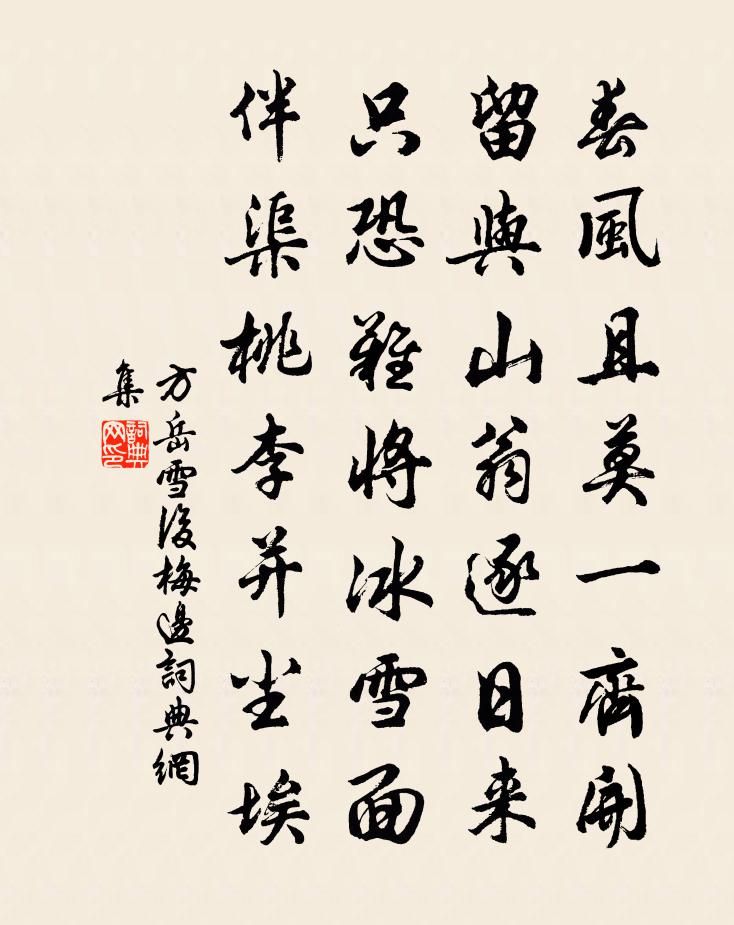 春風且莫一齊開
留與山翁逐日来
只恐難將冰雪面
伴渠桃李并尘埃
方岳雪後梅邊詞典網
集
詞典
网印